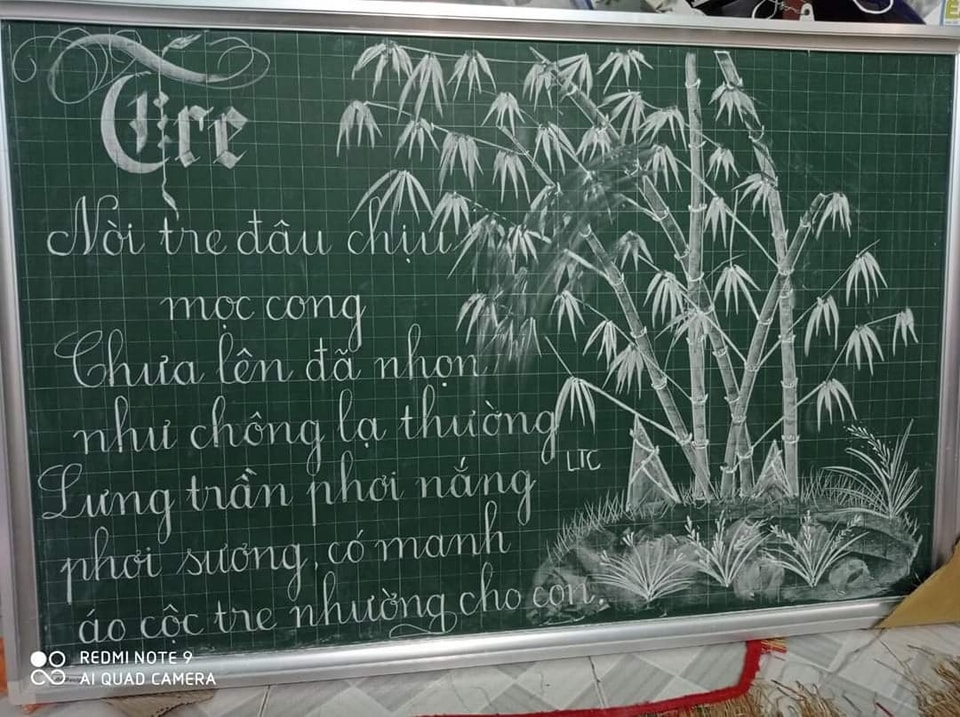 Tre
Nòi tre đâu chịu
mọc cong
Chưa lên đã nhọn
như chông lạ thường
Lưng trần phơi nắng
phơi sương, có manh
áo cộc tre nhường cho con.
LTC
REDMI NOTE 9
AI QUAD CAMERA